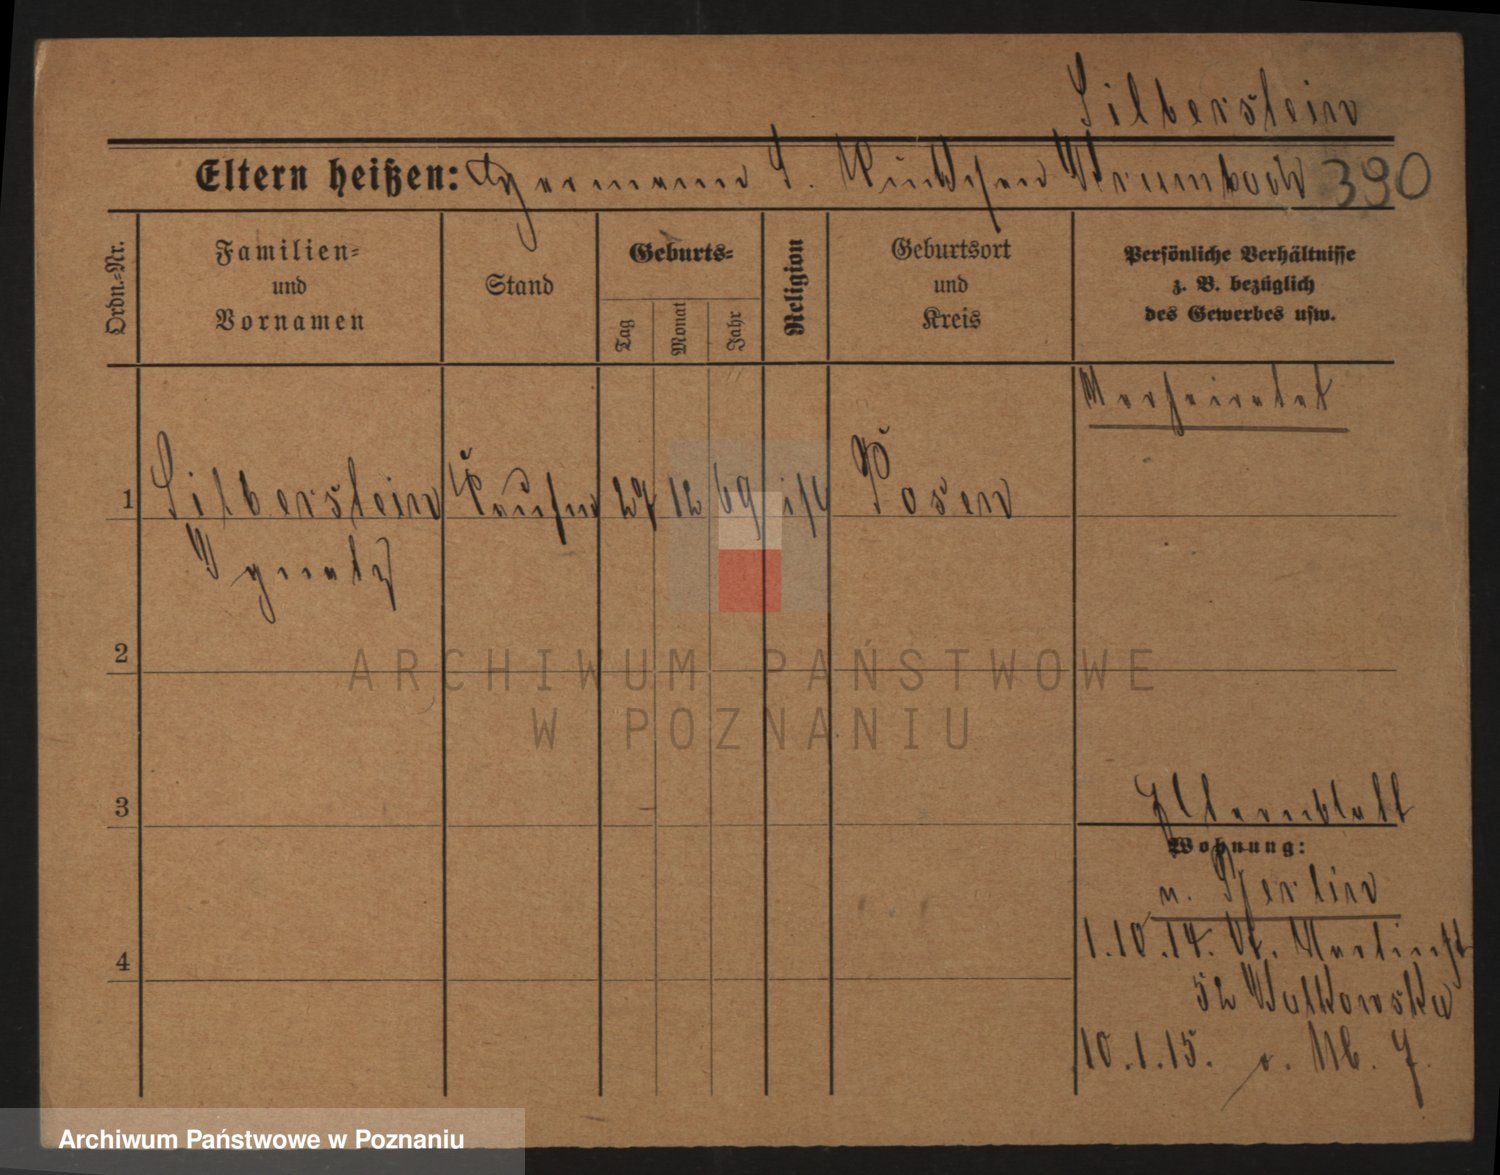 Silberstein
Eltern heißen: Hermann S. Krumbach 390
Ordn.-Nr.
Familien-
und
Vornamen
Stand
Geburts-
Tag
Monat
Jahr
Religion
Geburtsort
und
Kreis
Persönliche Verhältnisse
z. B. bezüglich
des Gewerbes usw.
Verheiratet
1 Silberstein Kaufm 27 12 69 isr Posen
Ignatz
2
ARCHIWUM PAŃSTWOWE
W POZNANIU
3
Elternblatt
Wohnung:
v. Berlin
1.10.14. St. Martinstr
52 Walkowska
4
10.1.15. v. Ab. 7.
Archiwum Państwowe w Poznaniu